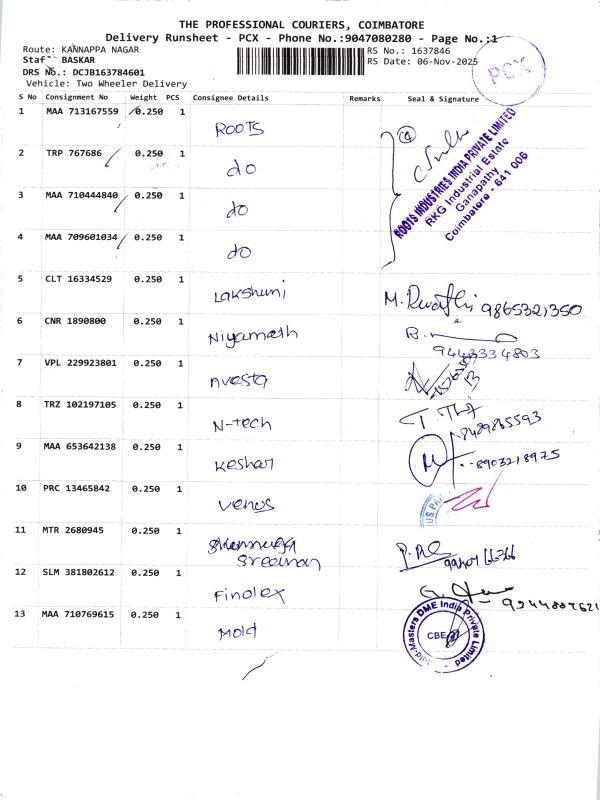 THE PROFESSIONAL COURIERS, COIMBATORE
Delivery Runsheet - PCX - Phone No.:9047080280 - Page No.:1
Route: KANNAPPA NAGAR
RS No.: 1637846
Staff: BASKAR
RS Date: 06-Nov-2025
DRS No.: DCJB163784601
Vehicle: Two Wheeler Delivery
PCX
S No Consignment No Weight PCS Consignee Details Remarks Seal & Signature
1 MAA 713167559 0.250 1 ROOTS
2 TRP 767686 0.250 1 do
3 MAA 710444840 0.250 1 do
4 MAA 709601034 0.250 1 do
4
ROOTS INDUSTRIES INDIA PRIVATE LIMITED
RKG Industrial Estate
Ganapathy
Coimbatore - 641 006
5 CLT 16334529 0.250 1 Lakshmi M. Revathi 9865321350
6 CNR 1890800 0.250 1 Niyamath B. 9443334803
7 VPL 229923801 0.250 1 nvesta
8 TRZ 102197105 0.250 1 N-tech 8489865593
9 MAA 653642138 0.250 1 Keshar 8903218975
10 PRC 13465842 0.250 1 venus
11 MTR 2680945 0.250 1 Shanmuga
Sreeman
12 SLM 381802612 0.250 1 Finolex
13 MAA 710769615 0.250 1 Mold
Mold-Masters DME India Private Limited
CBE